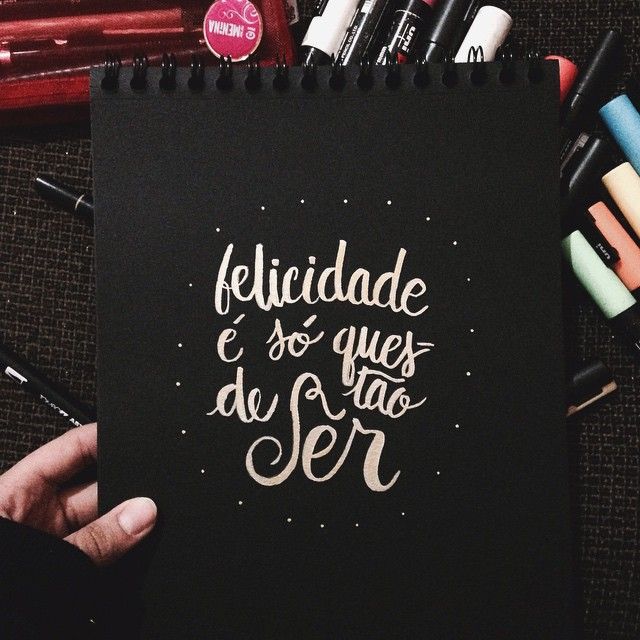 MENINA
felicidade
é só ques-
tão de
Ser